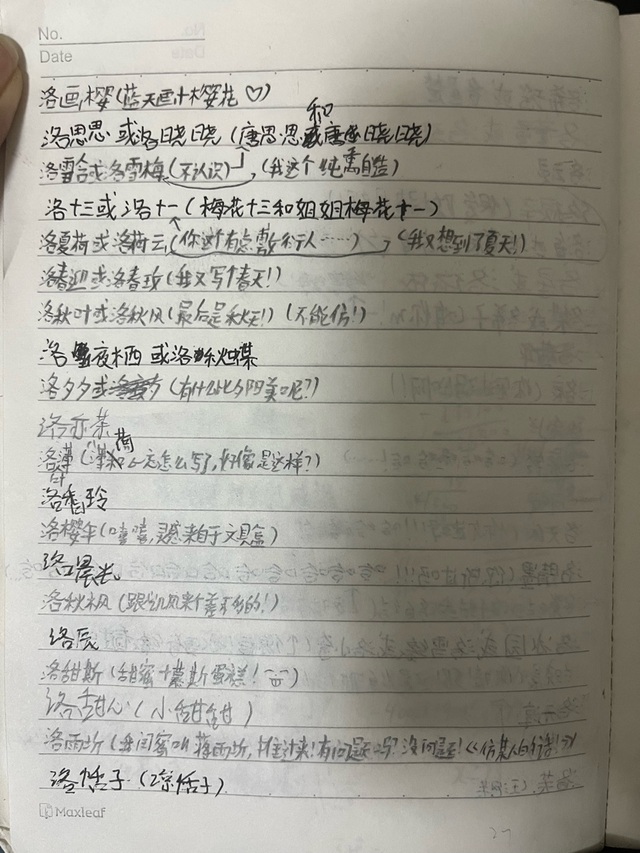 No.
Date
洛画樱(蓝天画汁樱花♡)
洛思思或洛晓晓(唐思思和唐晓晓)
洛雪含或洛雪梅(不认识),(我这个纯看自然)
洛十三或洛十一(梅花十三和姐姐梅花十一)
洛夏荷或洛荷云(你这有点敷衍人……)(我又想到了夏天!)
洛春迎或洛春玫(我又写个春天!)
洛秋叶或洛秋风(最后是秋天!)(不能仿!)
洛夜栖或洛
洛夕夕或(有什么比夕阳美呢?)
洛亦茶
洛(怎么写了,好像是这样?)
洛香玲
洛樱年(嘻嘻,灵感来自于文具盒)
洛晨光
洛秋枫(跟凯风来个差不多的!)
洛辰
洛甜斯(甜蜜+慕斯蛋糕!)
洛甜心(小甜甜)
洛雨昕(我闺蜜叫蒋雨昕,有问题吗?没问题!
洛恬子(凉恬子)
Maxleaf